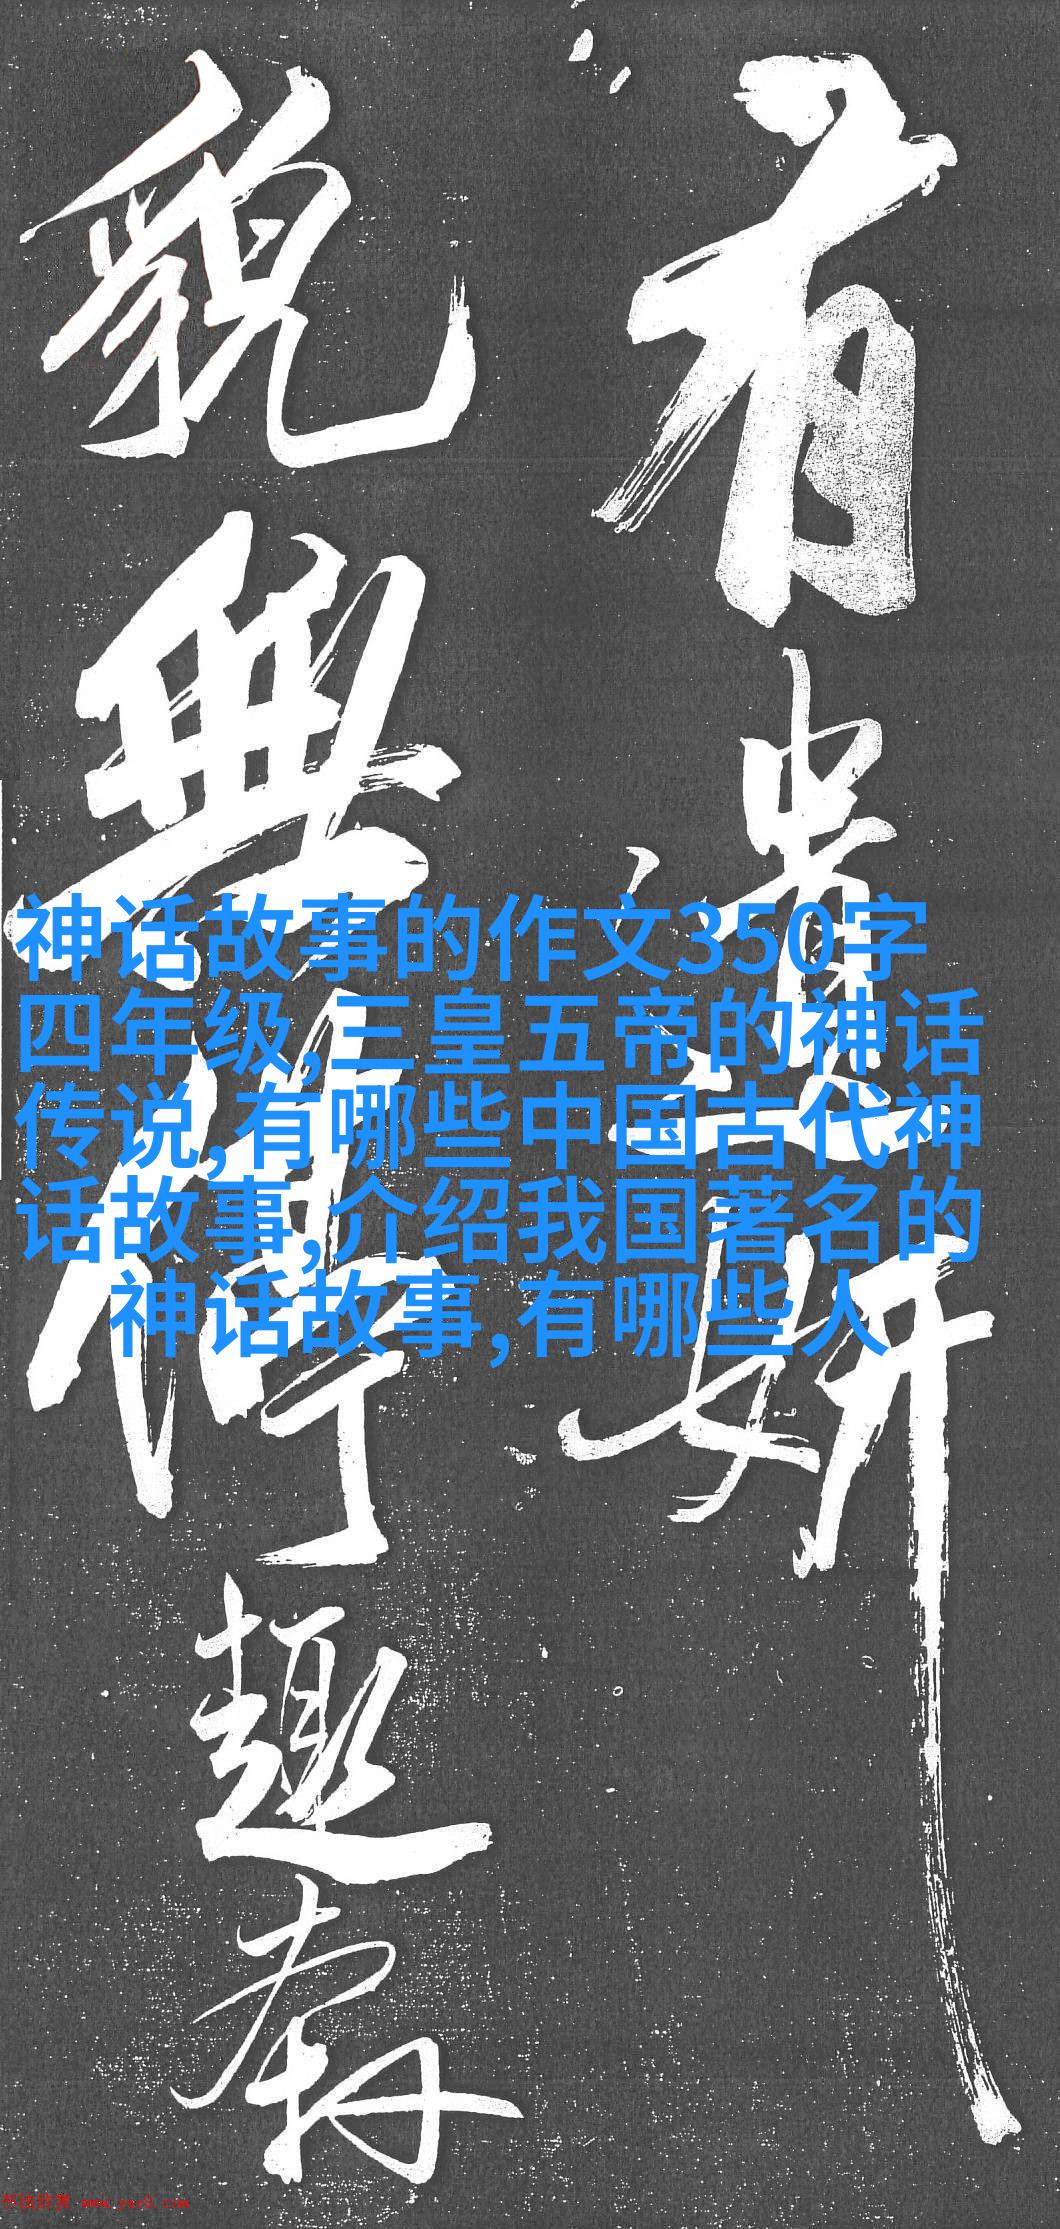 有遺妍
貌無停趣麝
神话故事的作文350字
四年级,三皇五帝的神话
传说,有哪些中国古代神
话故事,介绍我国著名的
神话故事,有哪些人